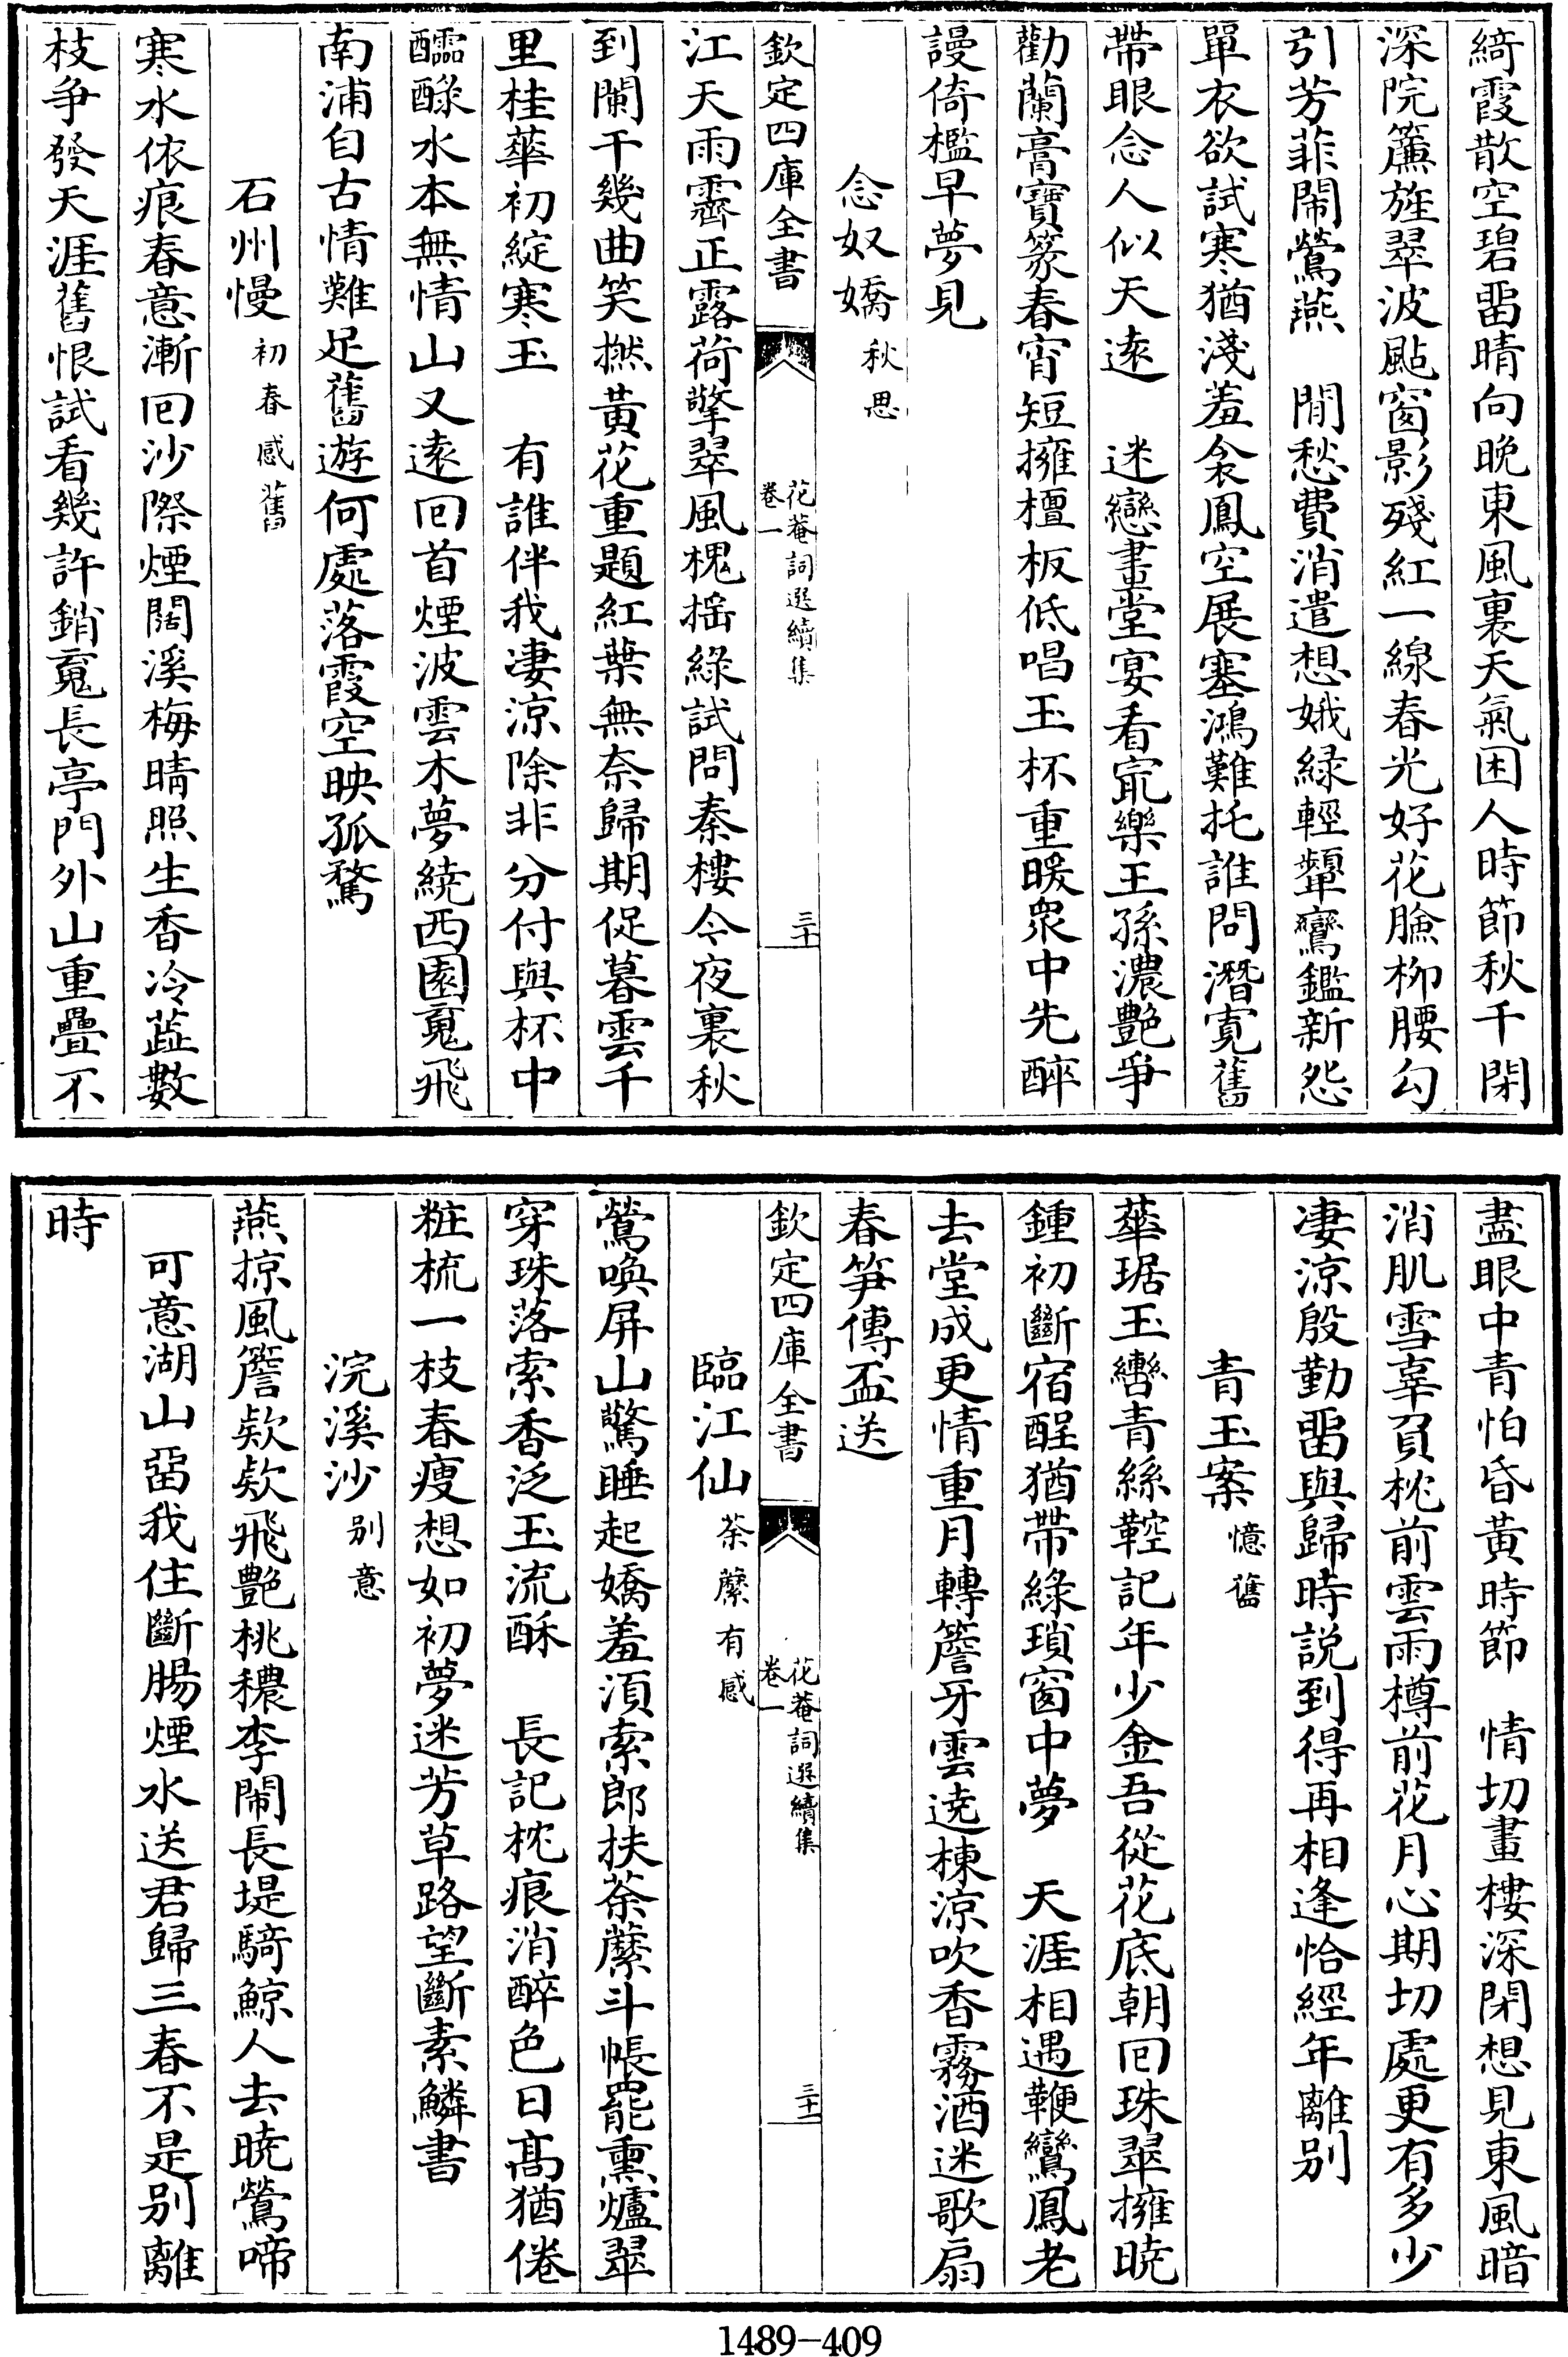 綺霞散空碧畱晴向晚東風裏天氣困人時節秋千閉
深院簾旌翠波颭窗影殘紅一線春光好花臉柳腰勾
引芳菲鬧鶯燕　閒愁費消遣想娥緑輕顰鸞鑑新怨
單衣欲試寒猶淺羞衾鳳空展塞鴻難托誰問潛寛舊
帶眼念人似天遠　迷戀畫堂宴看㝡樂王孫濃艷爭
勸蘭膏寶篆春宵短擁檀板低唱玉杯重暖衆中先醉
謾倚檻早夢見
念奴嬌秋思
欽定四庫全書　花菴詞選續集　卷一　三十
江天雨霽正露荷擎翠風槐揺綠試問秦樓今夜裏秋
到闌干幾曲笑撚黃花重題紅葉無奈歸期促暮雲千
里桂華初綻寒玉　有誰伴我凄涼除非分付與杯中
醽醁水本無情山又遠回首煙波雲木夢繞西園䰟飛
南浦自古情難足舊遊何處落霞空映孤鶩
石州慢初春感舊
寒水依痕春意漸回沙際煙闊溪梅晴照生香冷蘂數
枝爭發天涯舊恨試看幾許銷䰟長亭門外山重疊不
盡眼中青怕昏黃時節　情切畫樓深閉想見東風暗
消肌雪辜負枕前雲雨樽前花月心期切處更有多少
凄涼殷勤畱與歸時說到得再相逢恰經年離别
青玉案憶舊
華琚玉轡青絲鞚記年少金吾從花底朝回珠翠擁曉
鍾初斷宿酲猶帶綠瑣窗中夢　天涯相遇鞭鸞鳳老
去堂成更情重月轉簷牙雲遶棟涼吹香霧酒迷歌扇
春笋傳盃送
欽定四庫全書　花菴詞選續集　卷一　三十一
臨江仙荼蘼有感
鶯喚屏山驚睡起嬌羞須索郎扶荼蘼斗帳罷熏爐翠
穿珠落索香泛玉流酥　長記枕痕消醉色日髙猶倦
粧梳一枝春瘦想如初夢迷芳草路望斷素鱗書
浣溪沙别意
燕掠風簷欵欵飛艷桃穠李鬧長堤騎鯨人去曉鶯啼
可意湖山畱我住斷腸煙水送君歸三春不是别離
時
1489-409